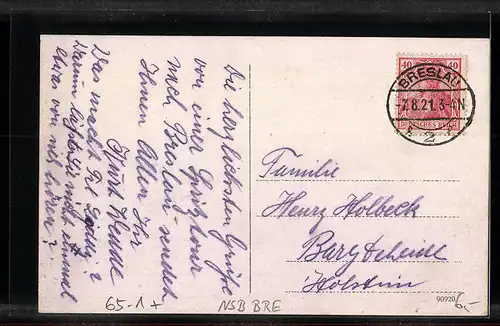 Die herzlichsten Grüße
von einer Spritztour
nach Breslau sendet
Ihnen Allen Ihr
Kurt
Das macht Frl.
Warum läßt sie nicht einmal
etwas von sich hören?
40 40
BRESLAU
-7.8.21.3-4N
DEUTSCHES REICH
2
Familie
Henry Holbeck
Bargteheide
Holstein
65-1+
NSB BRE
90920
6,-